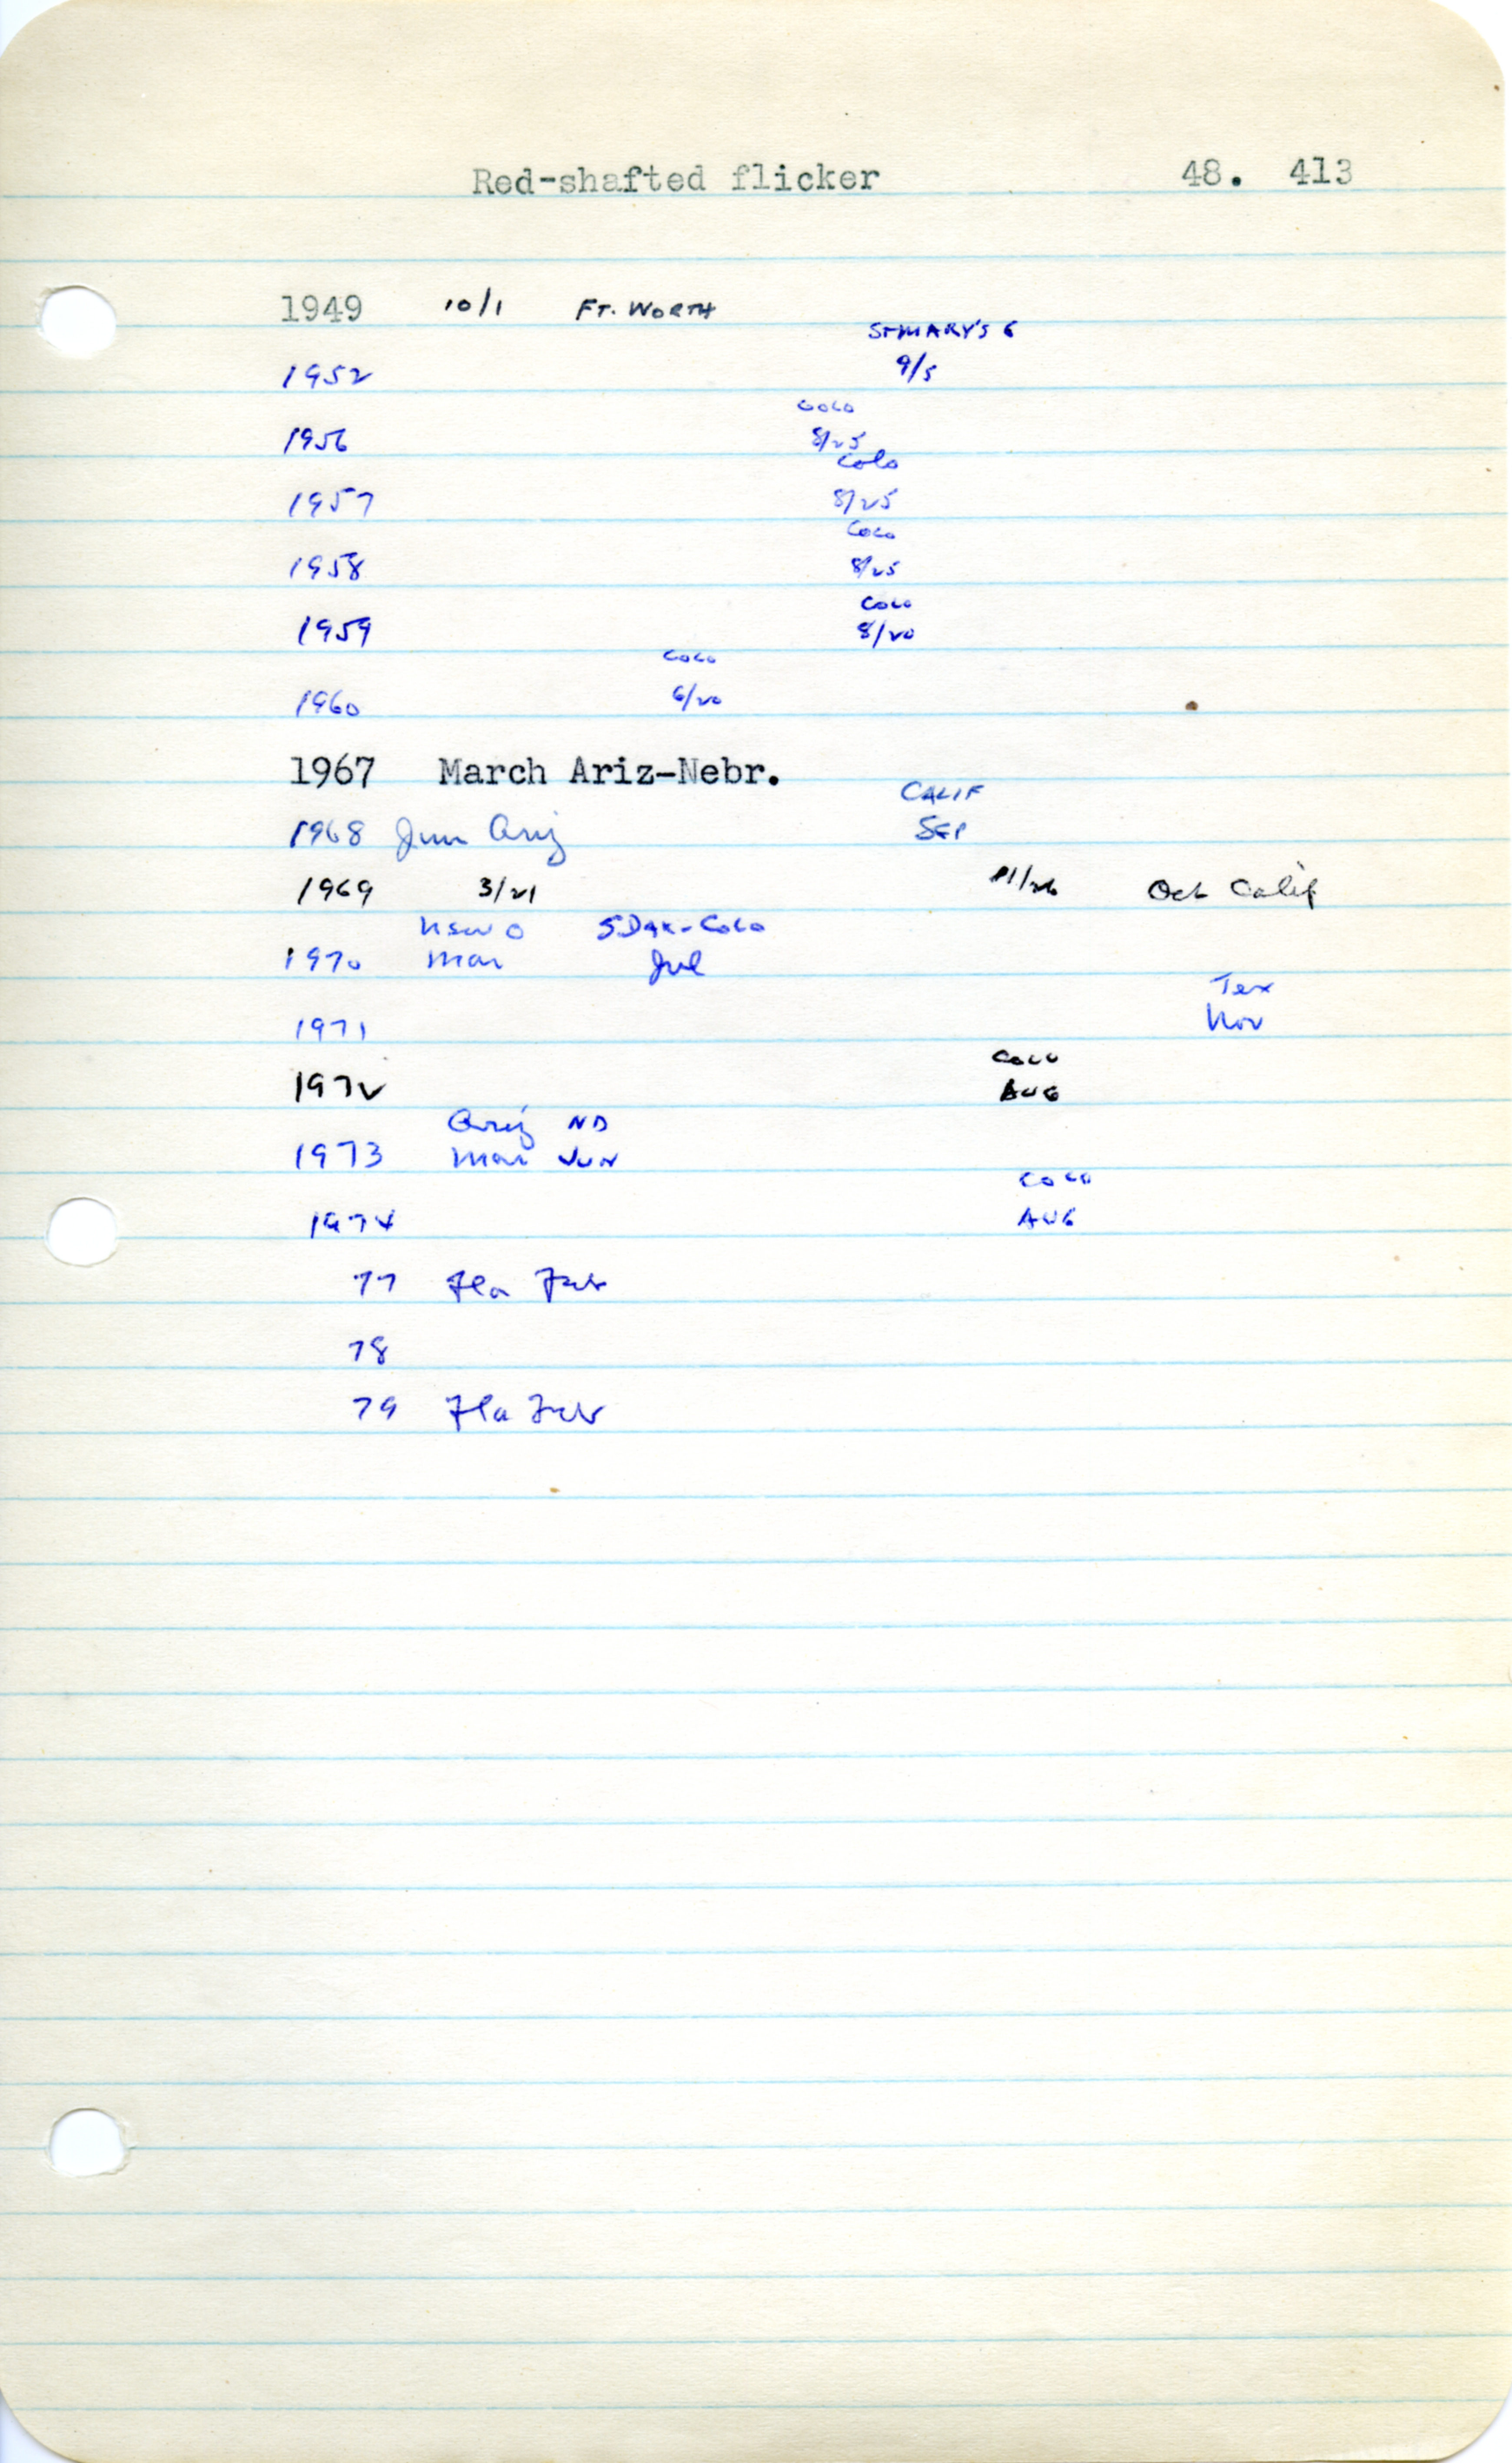 Red-shafted flicker 48. 413
1949 10/1 FT. WORTH
ST MARY'S G
1952 9/5
COLO
1956 8/25
Colo
1957 8/25
COLO
1958 8/25
COLO
1959 8/20
COLO
1960 6/20
1967 March Ariz-Nebr.
CALIF
1968 Jun Ariz SEP
1969 3/21 11/26 Oct Calif
S DAK-COLO
1970 Mar Jul
Tex
1971 Nov
COLO
1972 AUG
Ariz ND
1973 Mar JUN
COLO
1974 AUG
77 Fla Feb
78
79 Fla Feb